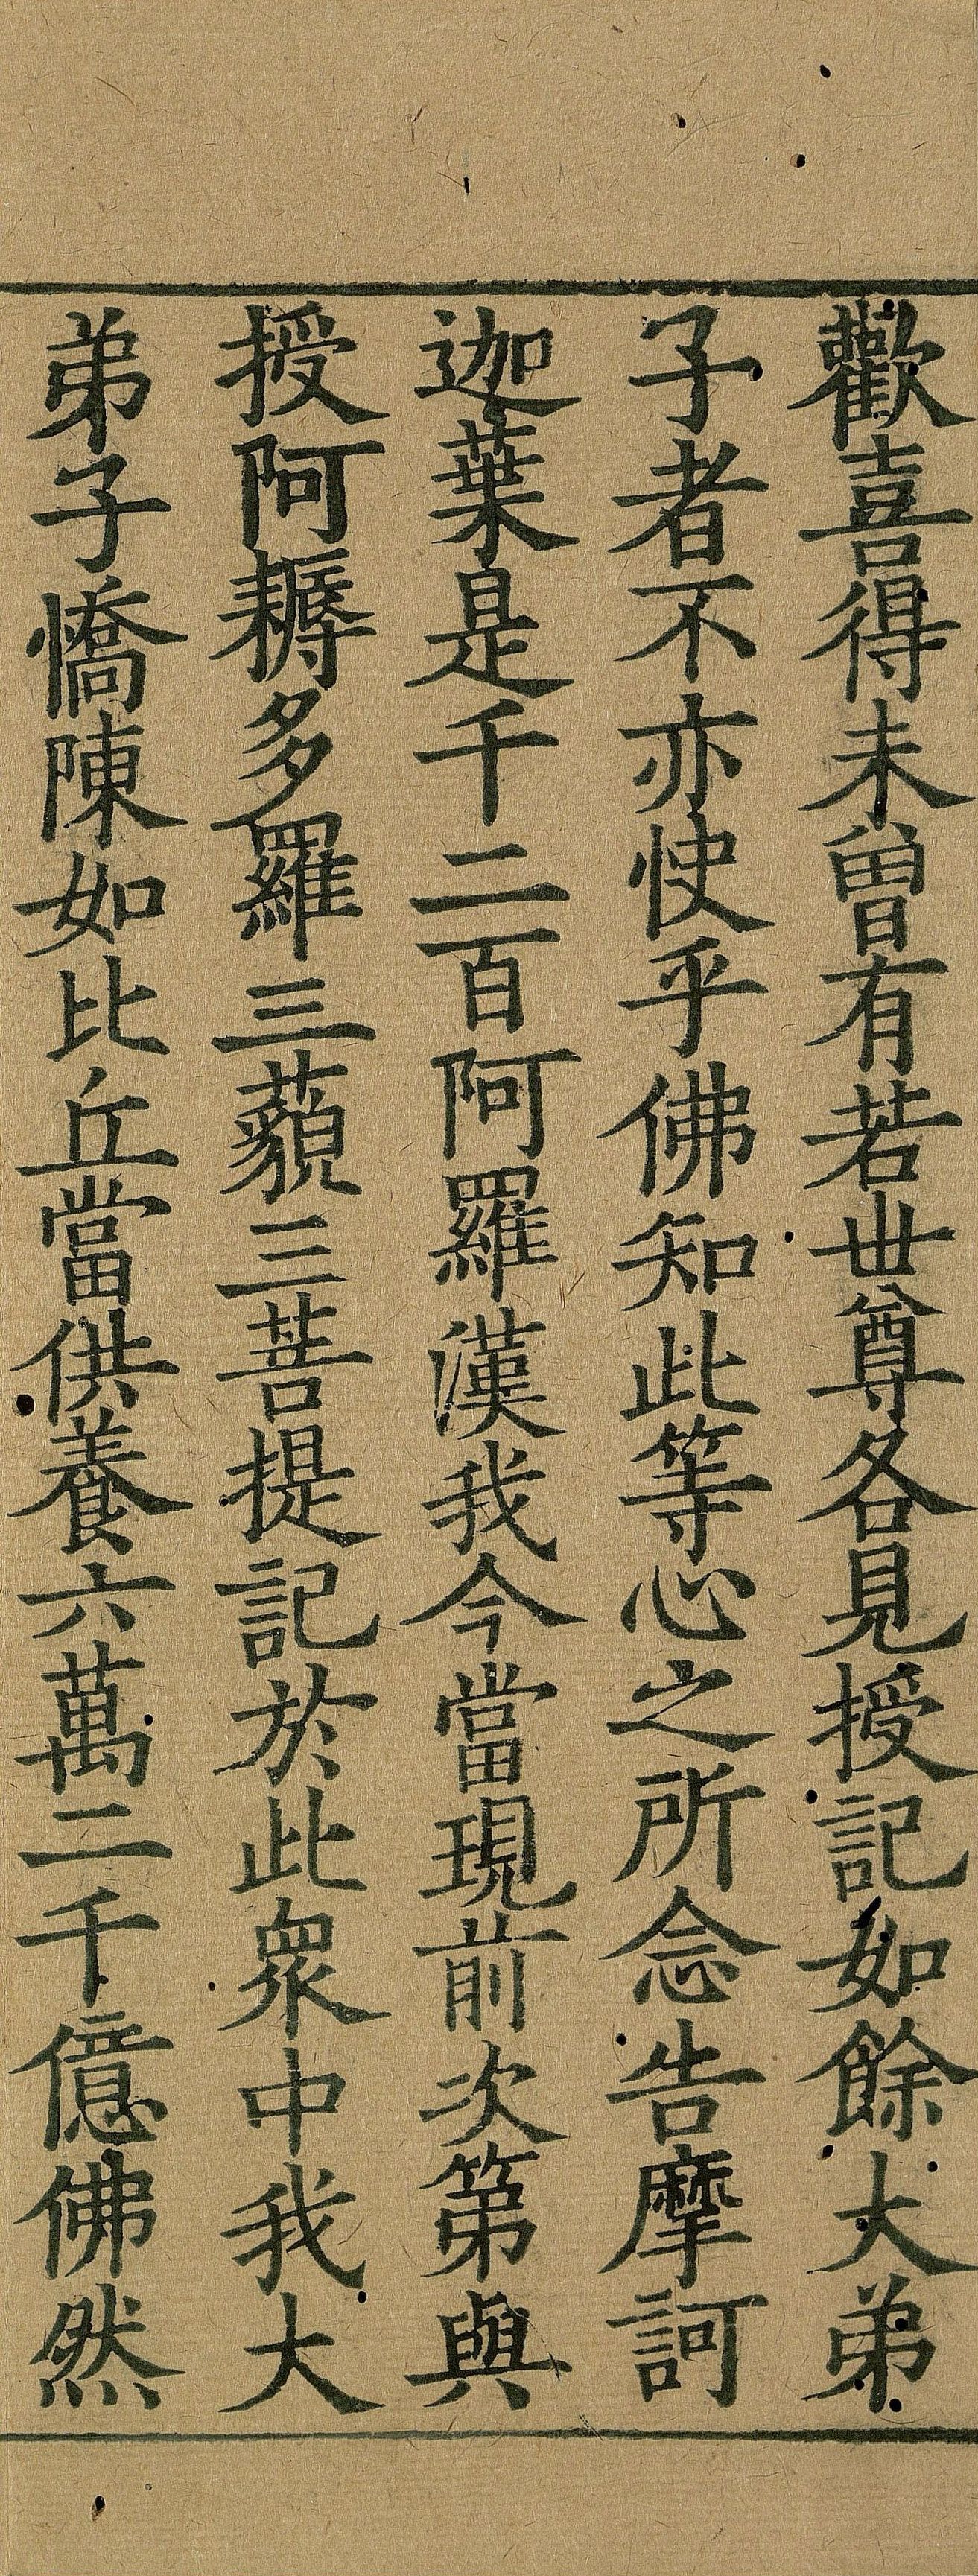 歡喜得未曾有若世尊各見授記如餘大弟
子者不亦快乎佛知此等心之所念告摩訶
迦葉是千二百阿羅漢我今當現前次第與
授阿耨多羅三藐三菩提記於此眾中我大
弟子憍陳如比丘當供養六萬二千億佛然